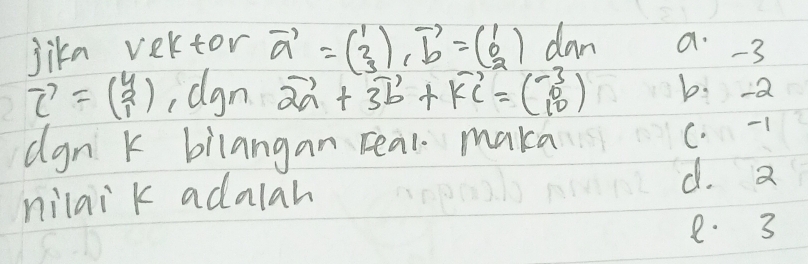 Jika vektor a⃗ = (1 2 3), b⃗ = (1 0 2) dan
c⃗ = (4 2 1), dgn 2a⃗ + 3b⃗ + kc⃗ = (-3 0 10)
dgn k bilangan real. maka
nilai k adalah
a. -3
b. -2
c. -1
d. 2
e. 3